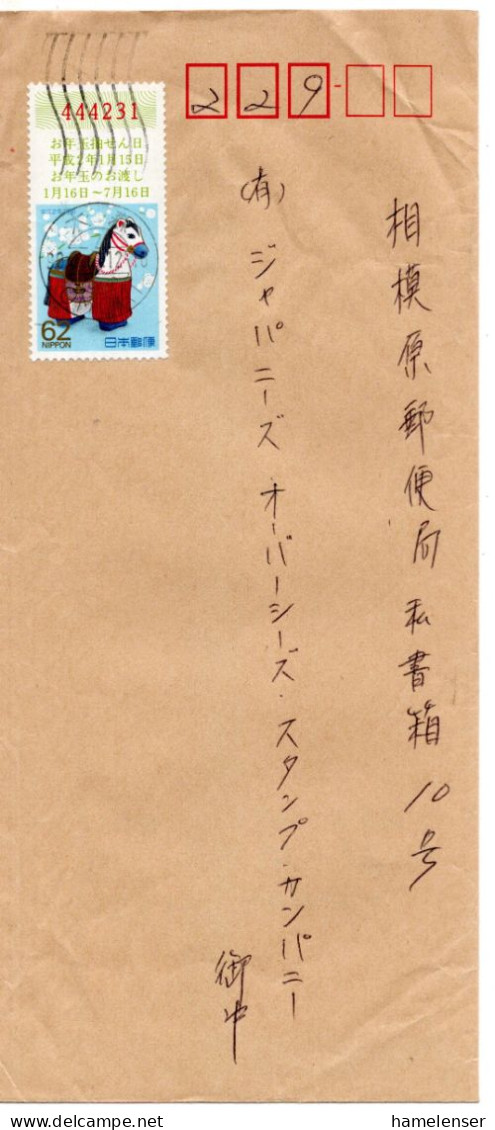 444231
お年玉抽せん日
平成2年1月15日
お年玉のお渡し
1月16日～7月16日
62
NIPPON
日本郵便
229-
相模原郵便局私書箱10号
(有)ジャパニーズ・オーバーシーズ・スタンプ・カンパニー
御中
delcampe.net
hamelenser